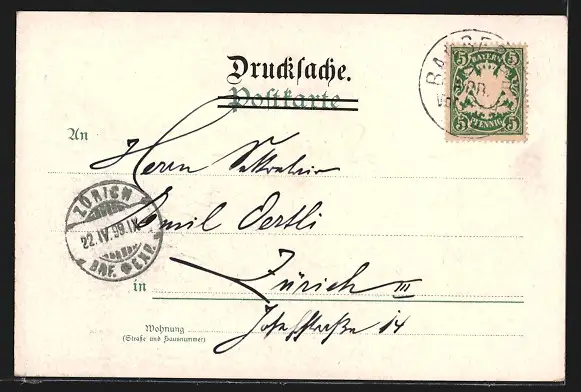 Drucksache.
Postkarte
BAYERN
5 5
5 5
PFENNIG
An
Herrn
Emil Oertli
ZÜRICH
22.IV.99.IX
BRF. EXP.
in Zürich III
Wohnung
(Straße und Hausnummer)
Josefstraße 14